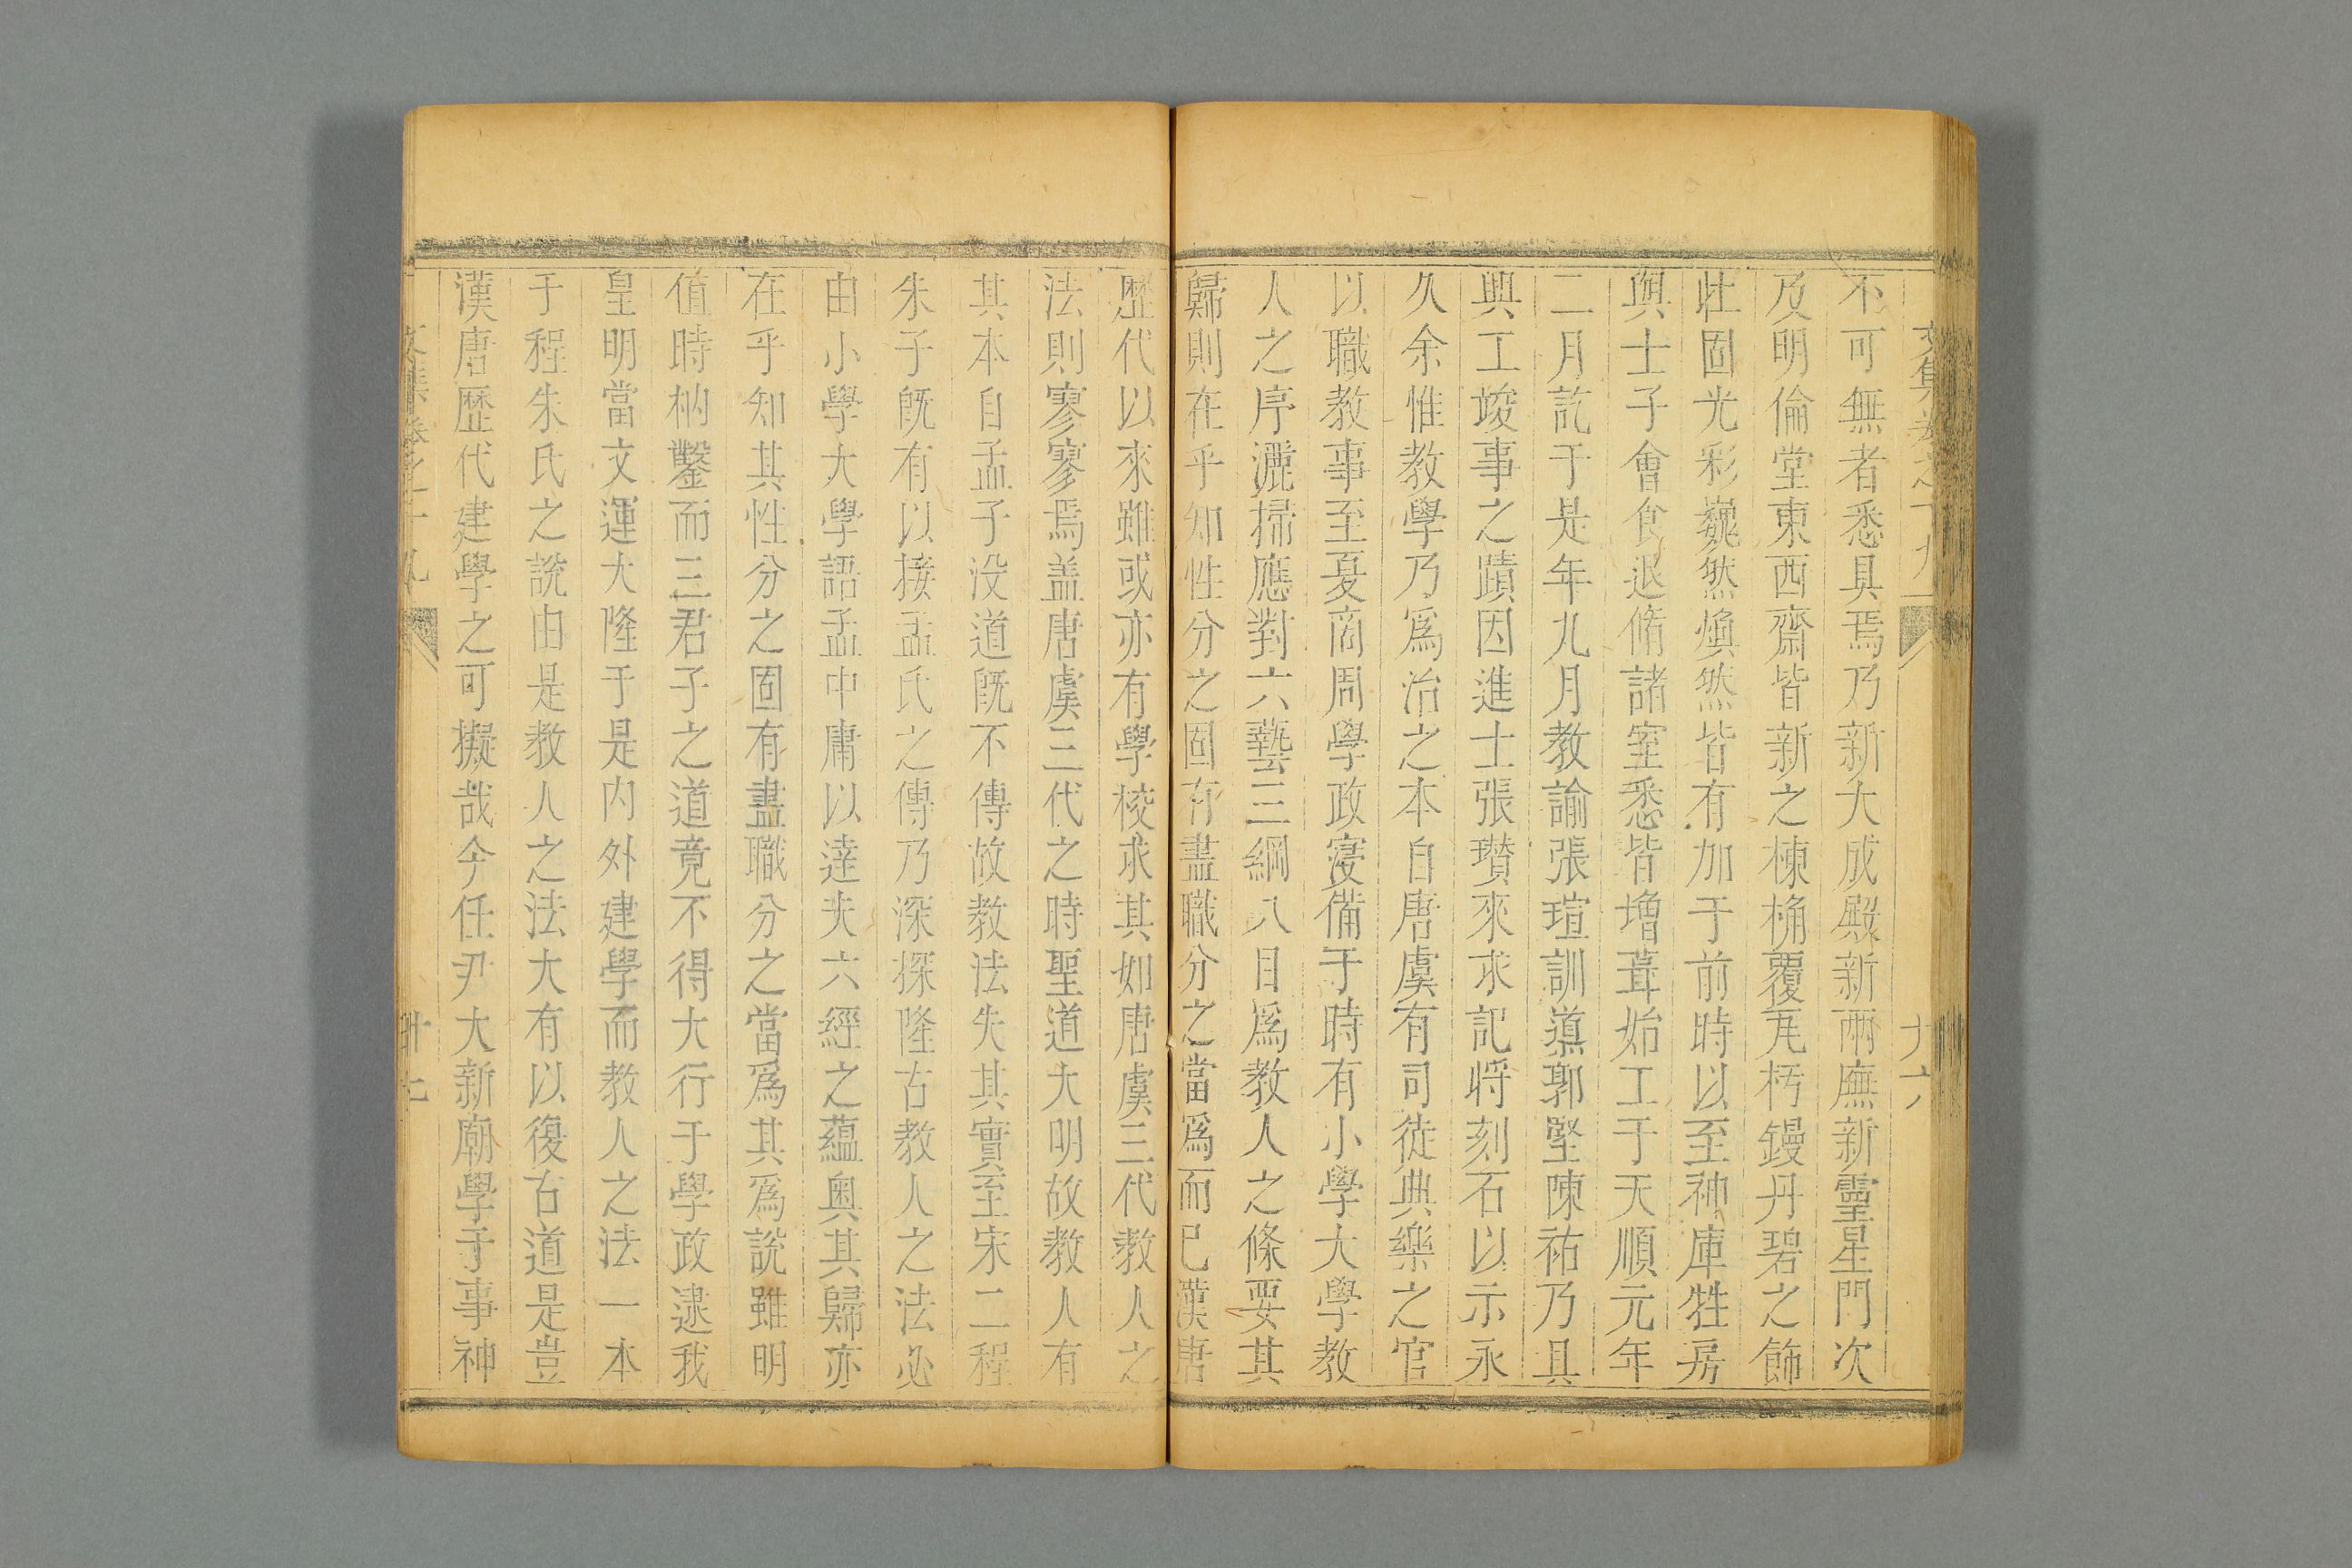 不可無者悉具焉乃新大成殿新兩廡新靈星門次
及明倫堂東西齋皆新之棟桷覆瓦杇鏝丹碧之飾
壯固光彩巍然煥然皆有加于前時以至神庫牲房
與士子會食退脩諸室悉皆增葺始工于天順元年
二月訖于是年九月教諭張瑄訓導郭堅陳祐乃具
興工竣事之蹟因進士張瓚來求記將刻石以示永
久余惟教學乃爲治之本自唐虞有司徒典樂之官
以職教事至夏商周學政寖備于時有小學大學教
人之序灑掃應對六藝三綱八目爲教人之條要其
歸則在乎知性分之固有盡職分之當爲而已漢唐
歷代以來雖或亦有學校求其如唐虞三代教人之
法則寥寥焉盖唐虞三代之時聖道大明故教人有
其本自孟子没道旣不傳故教法失其實至宋二程
朱子旣有以接孟氏之傳乃深探隆古教人之法必
由小學大學語孟中庸以達夫六經之蘊奥其歸亦
在乎知其性分之固有盡職分之當爲其爲說雖明
值時枘鑿而三君子之道竟不得大行于學政逮我
皇明當文運大隆于是内外建學而教人之法一本
于程朱氏之說由是教人之法大有以復古道是豈
漢唐歷代建學之可擬哉今任尹大新廟學于事神
文集卷之十九
卄七